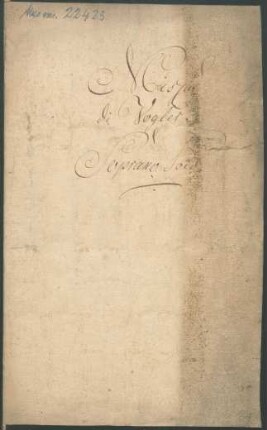 Mus. ms. 22423
Missa
di Vogler
Soprano Solo